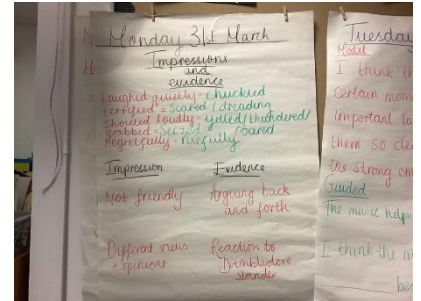 Monday 31st March
Impressions
and
evidence
Laughed quietly = chuckled
terrified = scared / dreading
Shouted loudly = yelled / thundered /
roared
grabbed = seized
Regretfully = ruefully
Impression Evidence
Not friendly Arguing back
and forth
Different views
+ opinions
Reaction to
Dumbledore
slander
Tuesday
Model
I think th
certain mom
important lo
them so cle
the strong em
Guided
The music help
I think the m
be